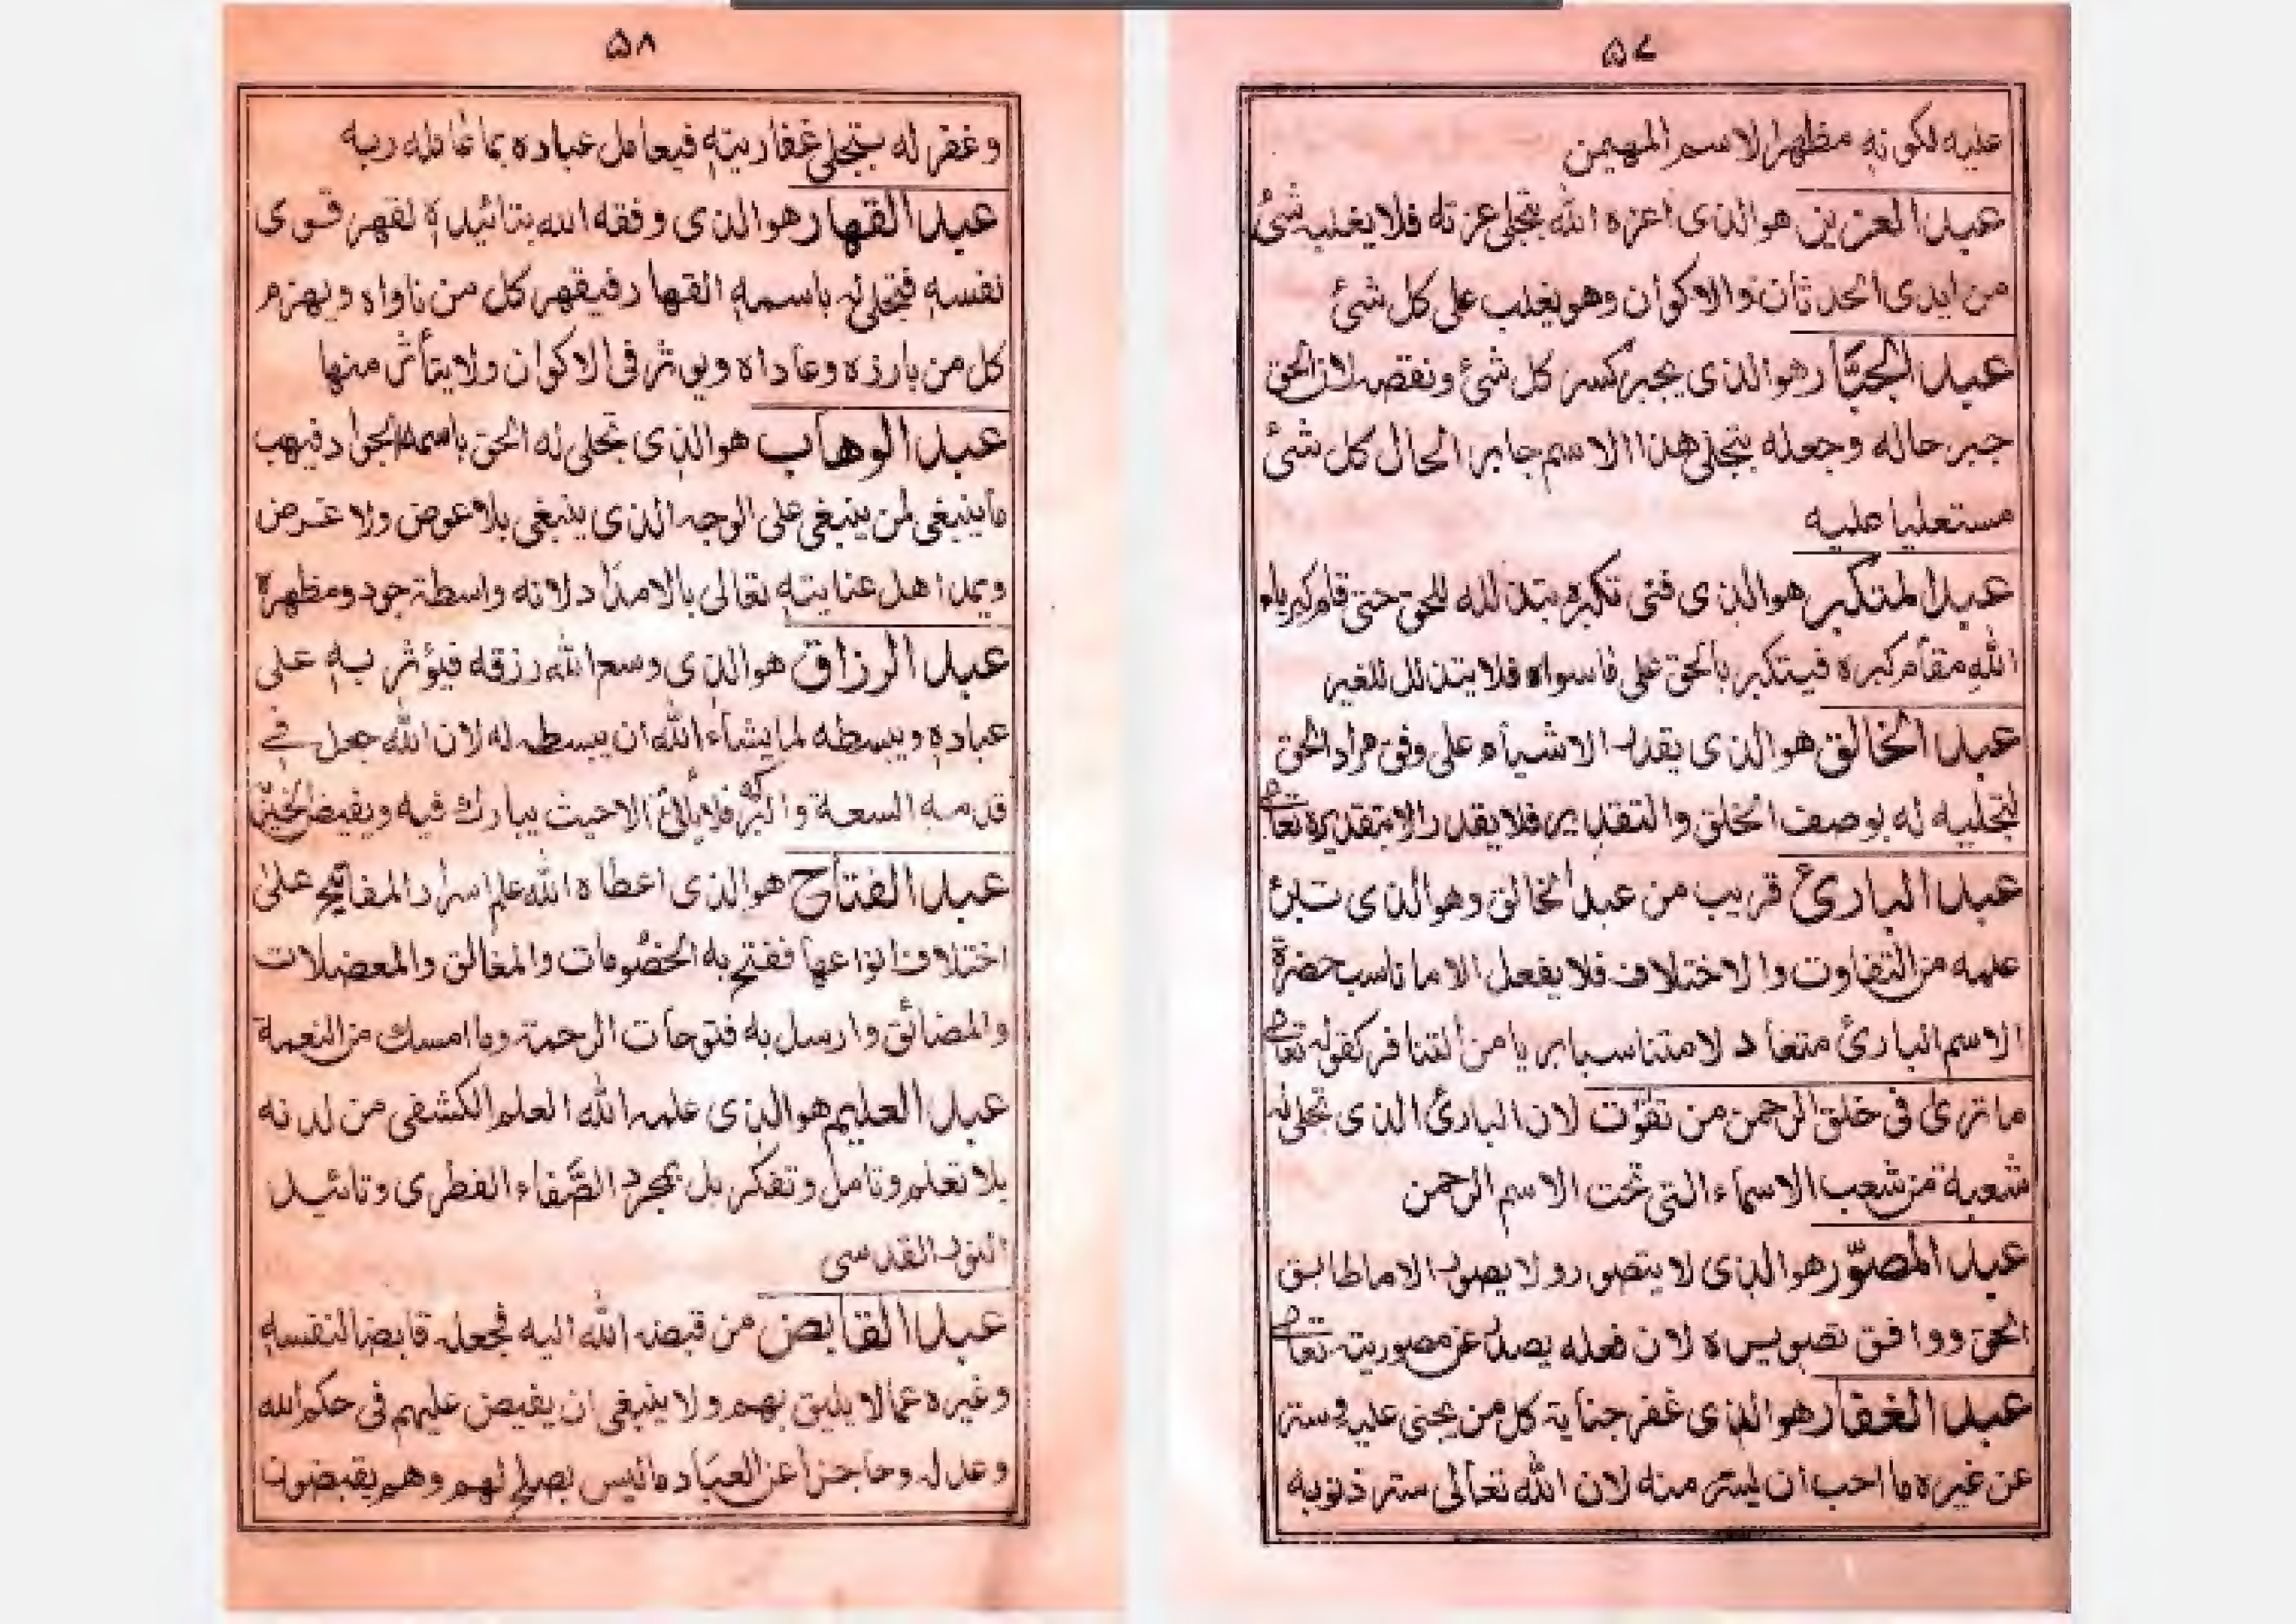 ۵۷
عليه لكونه مظهرا لاسم المهيمن
عبد العزيز هو الذى اعزه الله بتجلى عزته فلا يغلبه شئ
من ايدى الحدثان والاكوان وهو يغلب على كل شئ
عبد الجبَّار هو الذى يجبر كسر كل شئ ونقصه لان الحق
جبر حاله وجعله بتجلى هذا الاسم جابر الحال كل شئ
مستعليا عليه
عبد المتكبر هو الذى فنى تكبره بتذلله للحق حتى قام كبرياء
الله مقام كبره فيتكبر بالحق على ما سواه فلا يتذلل للغير
عبد الخالق هو الذى يقدر الاشياء على وفق مراد الحق
لتجليه له بوصف الخلق والتقدير فلا يقدر الا بتقديره تعالى
عبد البارئ قريب من عبد الخالق وهو الذى تبرئ
علمه من التفاوت والاختلاف فلا يفعل الا ما ناسب حضرة
الاسم البارئ متعاد لا متناسبا بريا من التنافر كقوله تعالى
ما ترى فى خلق الرحمن من تفٰوت لان البارئ الذى تجلى له
شعبة من شعب الاسماء التى تحت الاسم الرحمن
عبد المصوّر هو الذى لا يتصور ولا يصور الا ما طابق
الحق ووافق تصويره لان فعله يصدر عن مصوريته تعالى
عبد الغفار هو الذى غفر جناية كل من يجنى عليه وستر
عن غيره ما احب ان يستر منه لان الله تعالى ستر ذنوبه
۵۸
وغفر له بتجلى غفاريته فيعامل عباده بما عامله ربه
عبد القهار هو الذى وفقه الله بتائيده لقهر قوى
نفسه فتجلى له باسمه القهار فيقهر كل من ناواه ويهزم
كل من بارزه وعاداه ويوثر فى الاكوان ولا يتأثر منها
عبد الوهاب هو الذى تجلى له الحق باسمه الجواد فيهب
ما ينبغى لمن ينبغى على الوجه الذى ينبغى بلا عوض ولا غرض
ويمد اهل عنايته تعالى بالامداد لانه واسطة جود ومظهرة
عبد الرزاق هو الذى وسع الله رزقه فيؤثر به على
عباده ويبسطه لما يشاء الله ان يبسطه له لان الله جعل فى
قدمه السعة والبركة فلا يأتى الا حيث يبارك فيه ويفيض الخير
عبد الفتاح هو الذى اعطاه الله علم اسرار المفاتيح على
اختلاف انواعها ففتح به الخصومات والمغالق والمعضلات
والمضائق وارسل به فتوحات الرحمة وما امسك من النعمة
عبد العليم هو الذى علمه الله العلم الكشفى من لدنه
بلا تعلم وتامل وتفكر بل بمجرد الصَّفاء الفطرى وتائيد
النور القدسى
عبد القابض من قبضه الله اليه فجعله قابضا لنفسه
وغيره عما لا يليق بهم ولا ينبغى ان يفيض عليهم فى حكم الله
وعدله وحاجزا عن العباد ما ليس يصلح لهم وهم يقبضون